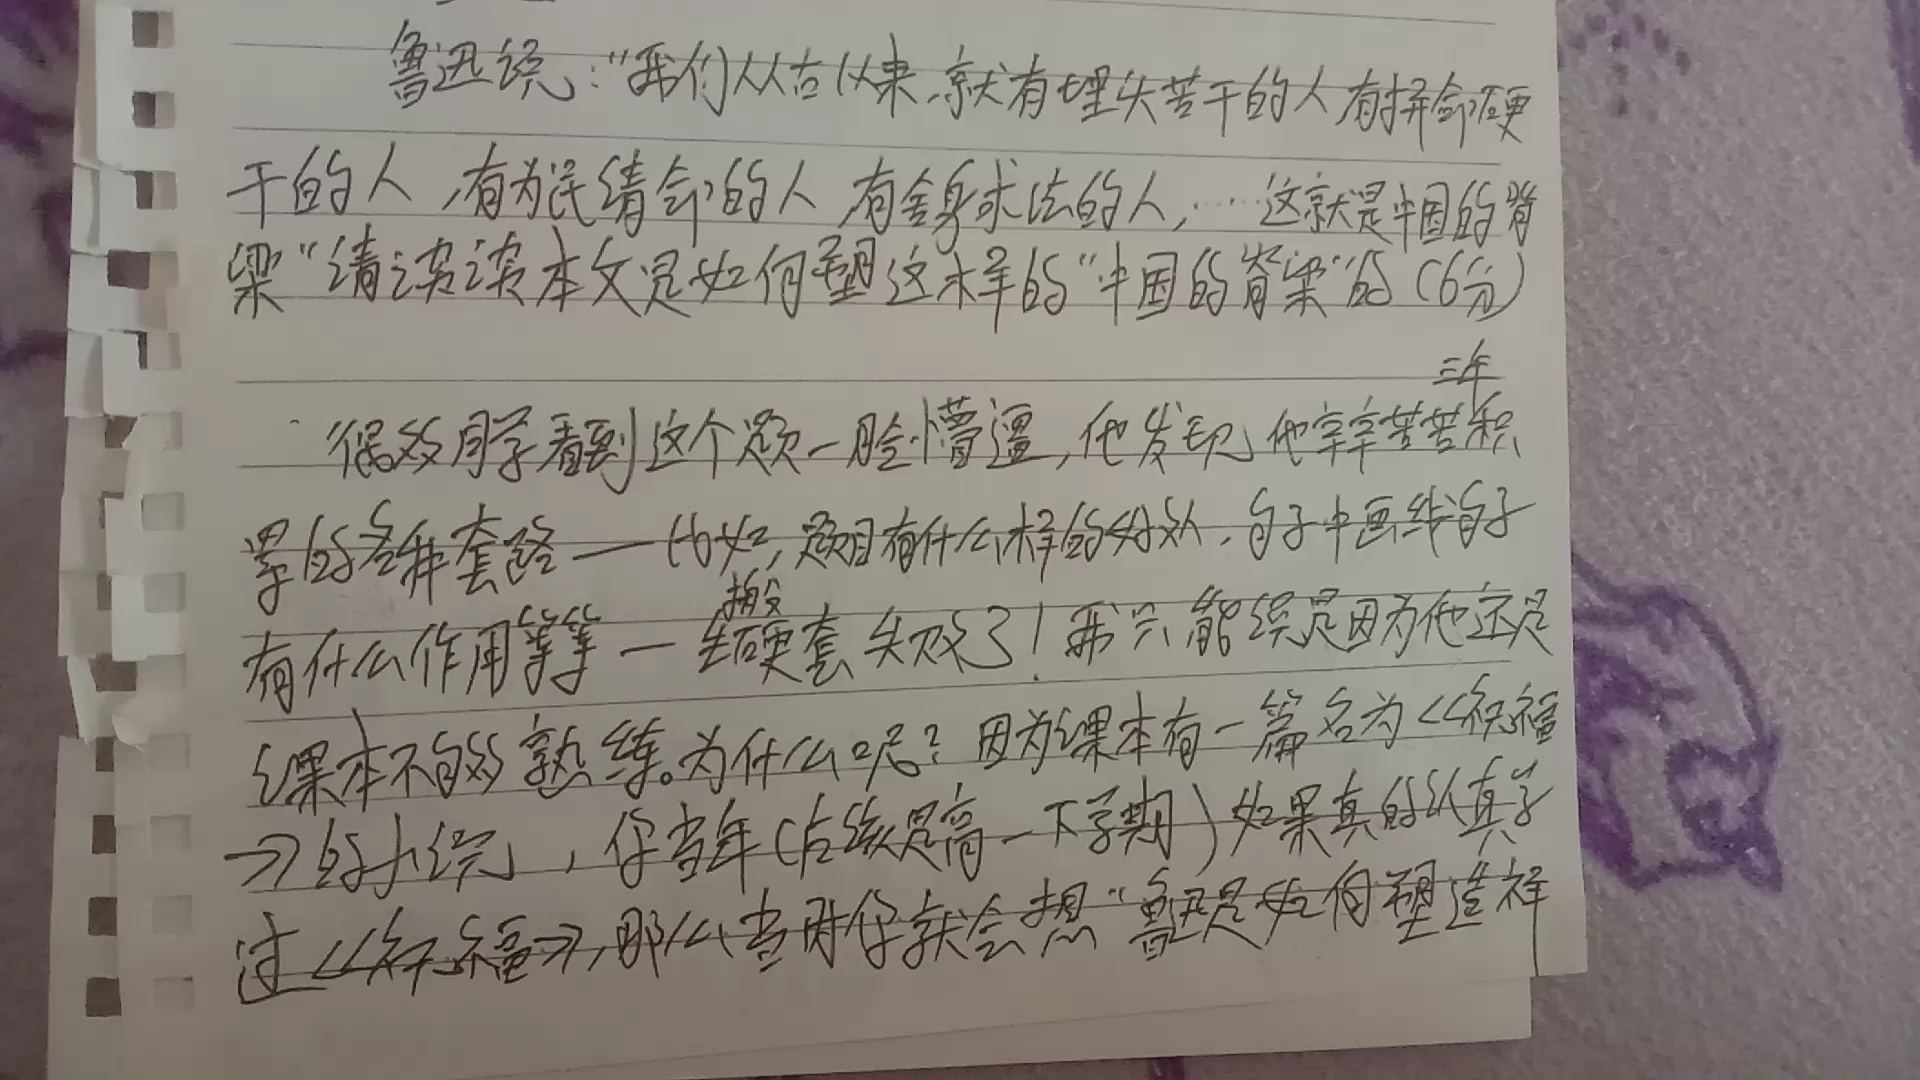 鲁迅说："我们从古以来,就有埋头苦干的人有拼命硬
干的人,有为民请命的人,有舍身求法的人,……这就是中国的脊
梁"请谈谈本文是如何塑这样的"中国的脊梁"的(6分)
三年
同学看到这个题一脸懵逼,他发现他辛辛苦苦积
累的各种套路——比如,题目有什么样的好处,句子中画线句子
搬
有什么作用等等—生硬套失败了!我只能说是因为他还是
课本不够熟练。为什么呢?因为课本有一篇名为《祝福
》的小说,你当年(应该是高一下学期)如果真的认真学
过《祝福》,那么当时你就会想"鲁迅是如何塑造祥